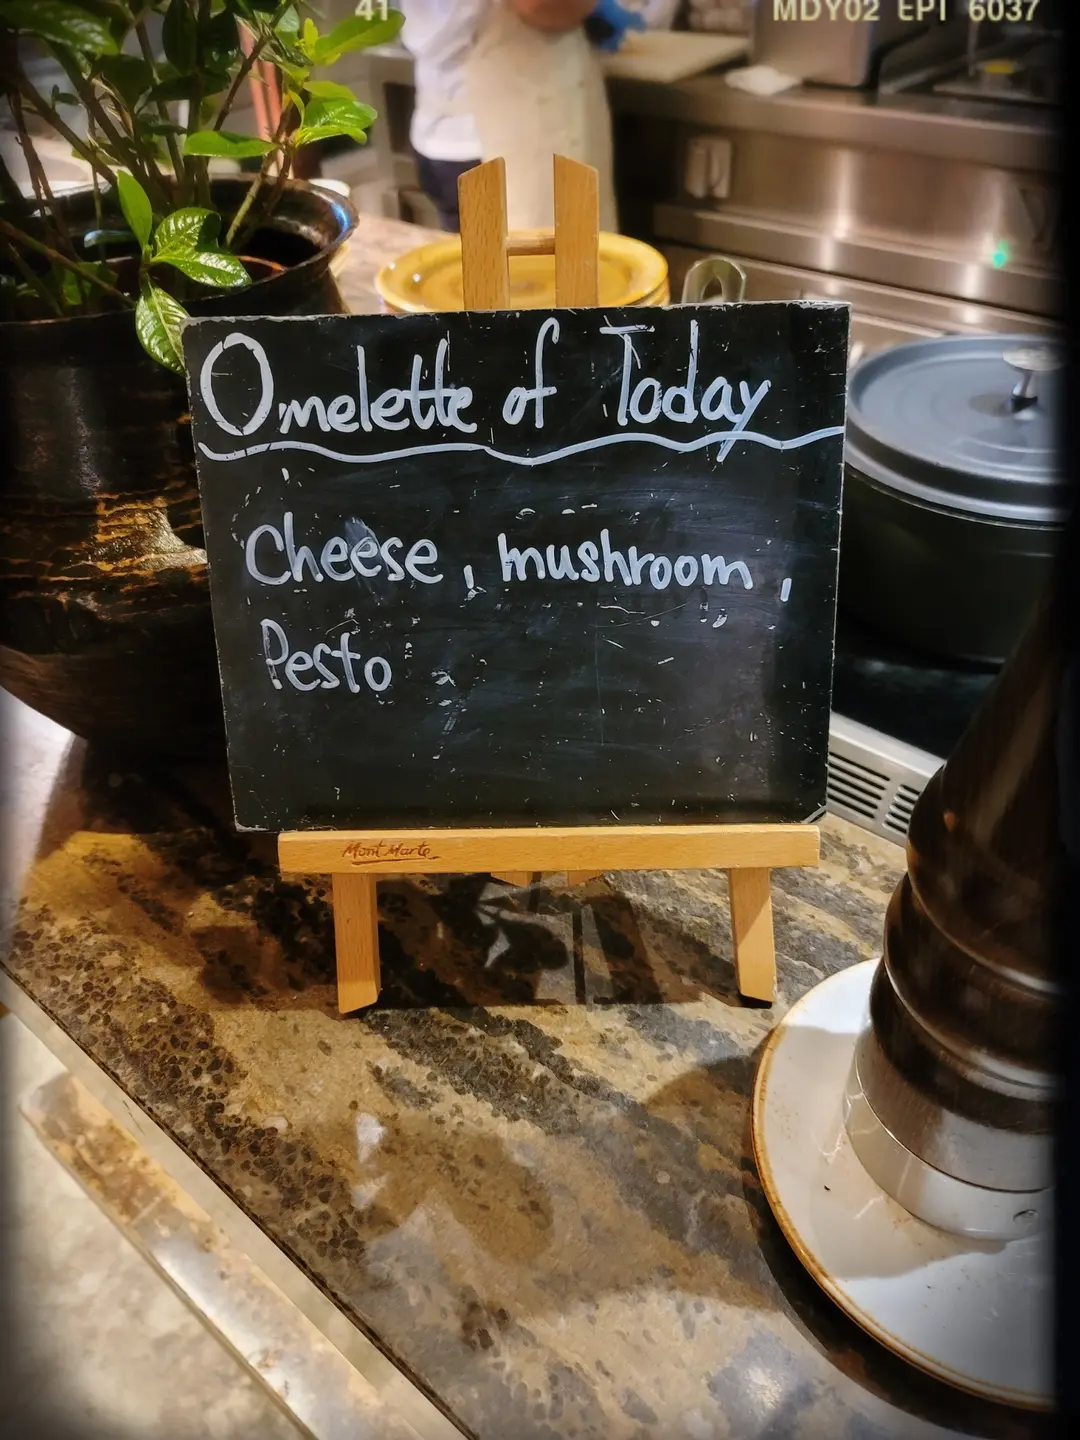 41 MDY02 EPI 6037
Omelette of Today
Cheese, mushroom,
Pesto
Mont Marte